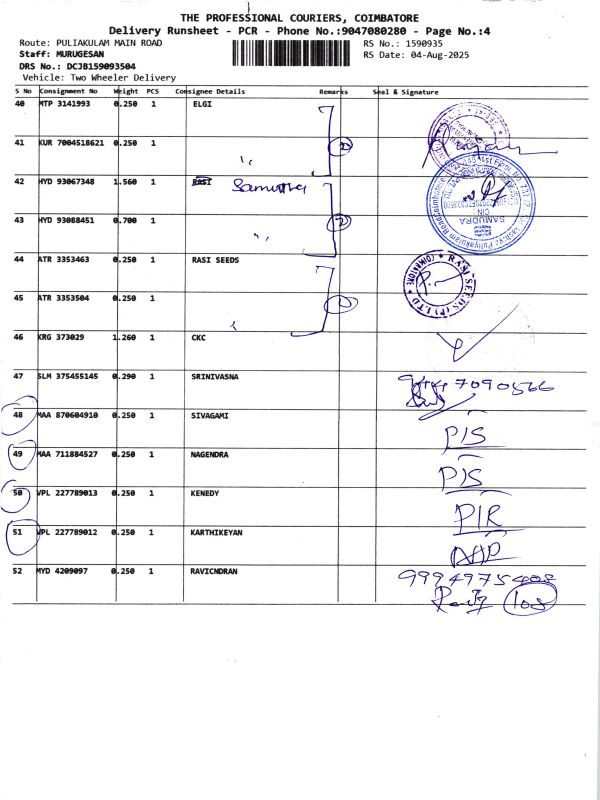 THE PROFESSIONAL COURIERS, COIMBATORE
Delivery Runsheet - PCR - Phone No.:9047080280 - Page No.:4
Route: PULIAKULAM MAIN ROAD
RS No.: 1590935
Staff: MURUGESAN
RS Date: 04-Aug-2025
DRS No.: DCJB159093504
Vehicle: Two Wheeler Delivery
S No Consignment No Weight PCS Consignee Details Remarks Seal & Signature
40 MTP 3141993 0.250 1 ELGI
41 KUR 7004518621 0.250 1 "
42 HYD 93067348 1.560 1 RASI Samudra
43 HYD 93088451 0.700 1 "
SAMUDRA
44 ATR 3353463 0.250 1 RASI SEEDS
RASI SEEDS (P) LTD
45 ATR 3353504 0.250 1
46 KRG 373029 1.260 1 CKC
47 SLM 375455145 0.290 1 SRINIVASNA
48 MAA 870604910 0.250 1 SIVAGAMI PIS
49 MAA 711884527 0.250 1 NAGENDRA PIS
50 VPL 227789013 0.250 1 KENEDY PIR
51 VPL 227789012 0.250 1 KARTHIKEYAN
52 MYD 4209097 0.250 1 RAVICNDRAN 9994975408
108